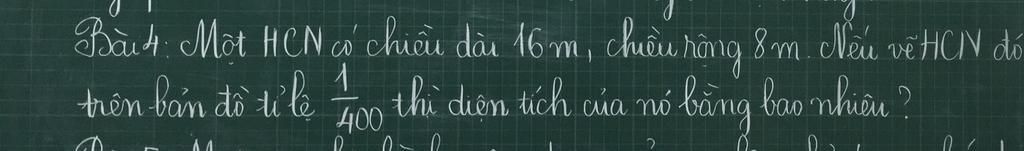 Bài 4: Một HCN có chiều dài 16m, chiều rộng 8m. Nếu vẽ HCN đó
trên bản đồ tỉ lệ 1/400 thì diện tích của nó bằng bao nhiêu?